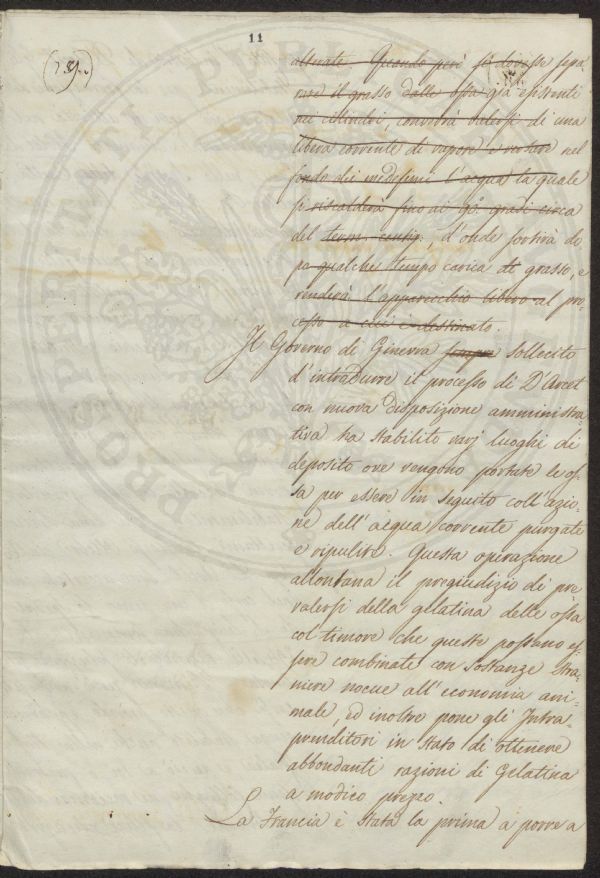 11
altuate. Quando però si dovesse sepa
rare il grasso dalle ossa già esistenti
nei cilindri, converrà valersi di una
libera corrente di vapore e versare nel
fondo dei medesimi l'acqua la quale
si riscalderà fino ai 90. gradi circa
del term. centig., d'onde sortirà do
pa qualche tempo carica di grasso, e
renderà l'apparecchio libero al pro-
cesso a cui è destinato.
Il Governo di Ginevra sempre sollecito
d'intradurre il processo di D'Arcet
con nuova disposizione amministra-
tiva ha stabilito varj luoghi di
deposito ove vengono portate le os-
sa per essere in seguito coll'azio-
ne dell'acqua corrente purgate
e ripulite. Questa operazione
allontana il pregiudizio di pre
valersi della gelatina delle ossa
col timore che queste possano es
sere combinate con sostanze stra-
niere nocue all'economia ani-
male, ed inoltre pone gli Intra-
prenditori in stato di ottenere
abbondanti razioni di Gelatina
a modico prezzo.
La Francia è stata la prima a porre a